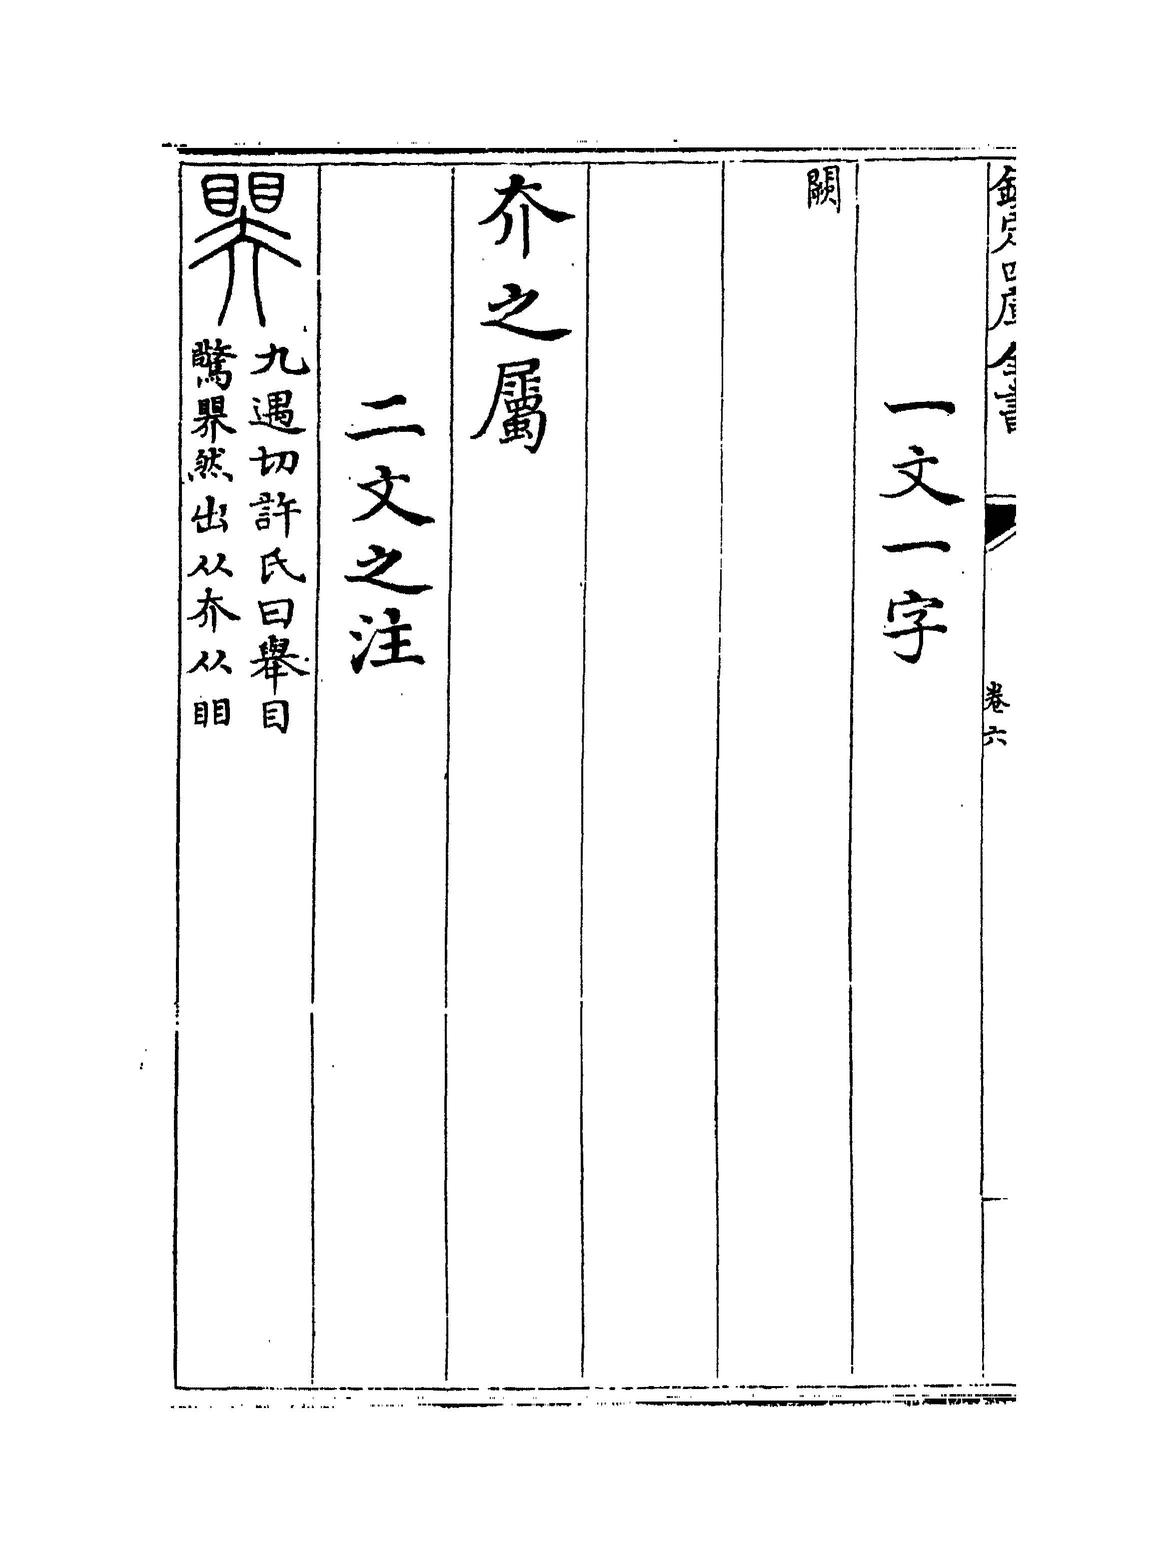 欽定四庫全書
卷六
一文一字
闕
夰之屬
二文之注
㬪九遇切許氏曰舉目
驚㬪然出从夰从䀠